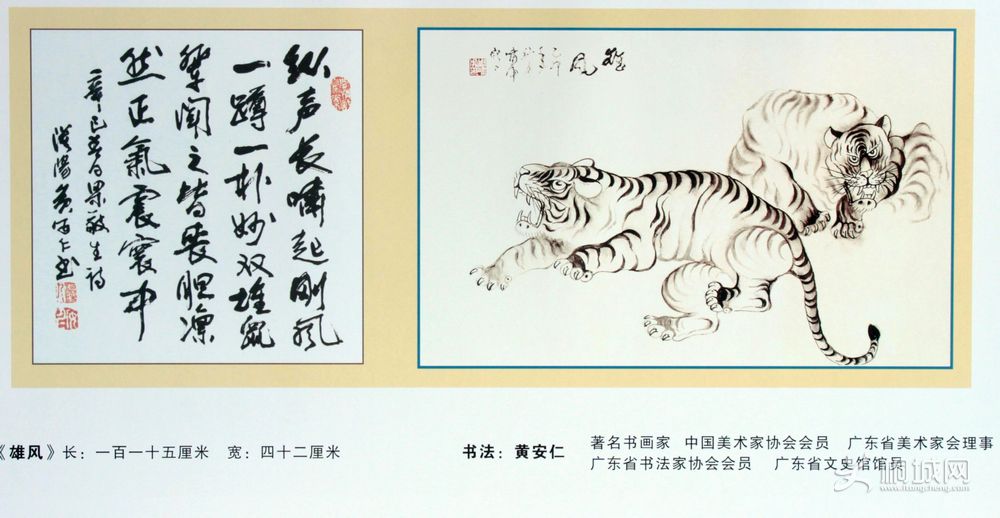 纵声长啸起刚风
一蹲一扑妙双雄鼠
孽闻之皆丧胆凛
然正气震寰中
辛巳 生诗
阳黄安仁书
雄风
《雄风》长：一百一十五厘米 宽：四十二厘米
书法：黄安仁
著名书画家 中国美术家协会会员 广东省美术家会理事
广东省书法家协会会员 广东省文史馆馆员
桐城网
www.itongcheng.com